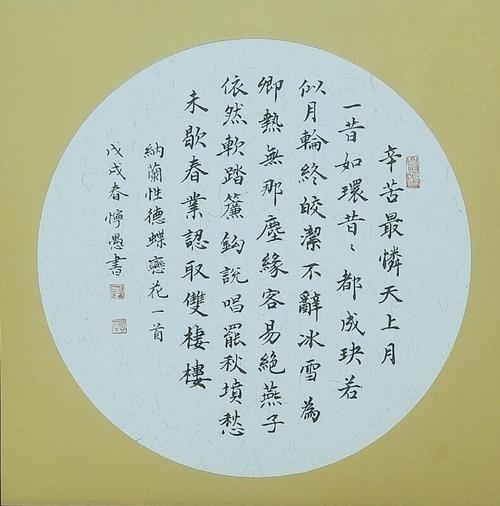 辛苦最憐天上月
一昔如環昔〻都成玦若
似月輪終皎潔不辭冰雪為
卿熱無那塵緣容易絕燕子
依然軟踏簾鉤說唱罷秋墳愁
未歇春業認取雙棲樓
納蘭性德蝶戀花一首
戊戌春懧愚書